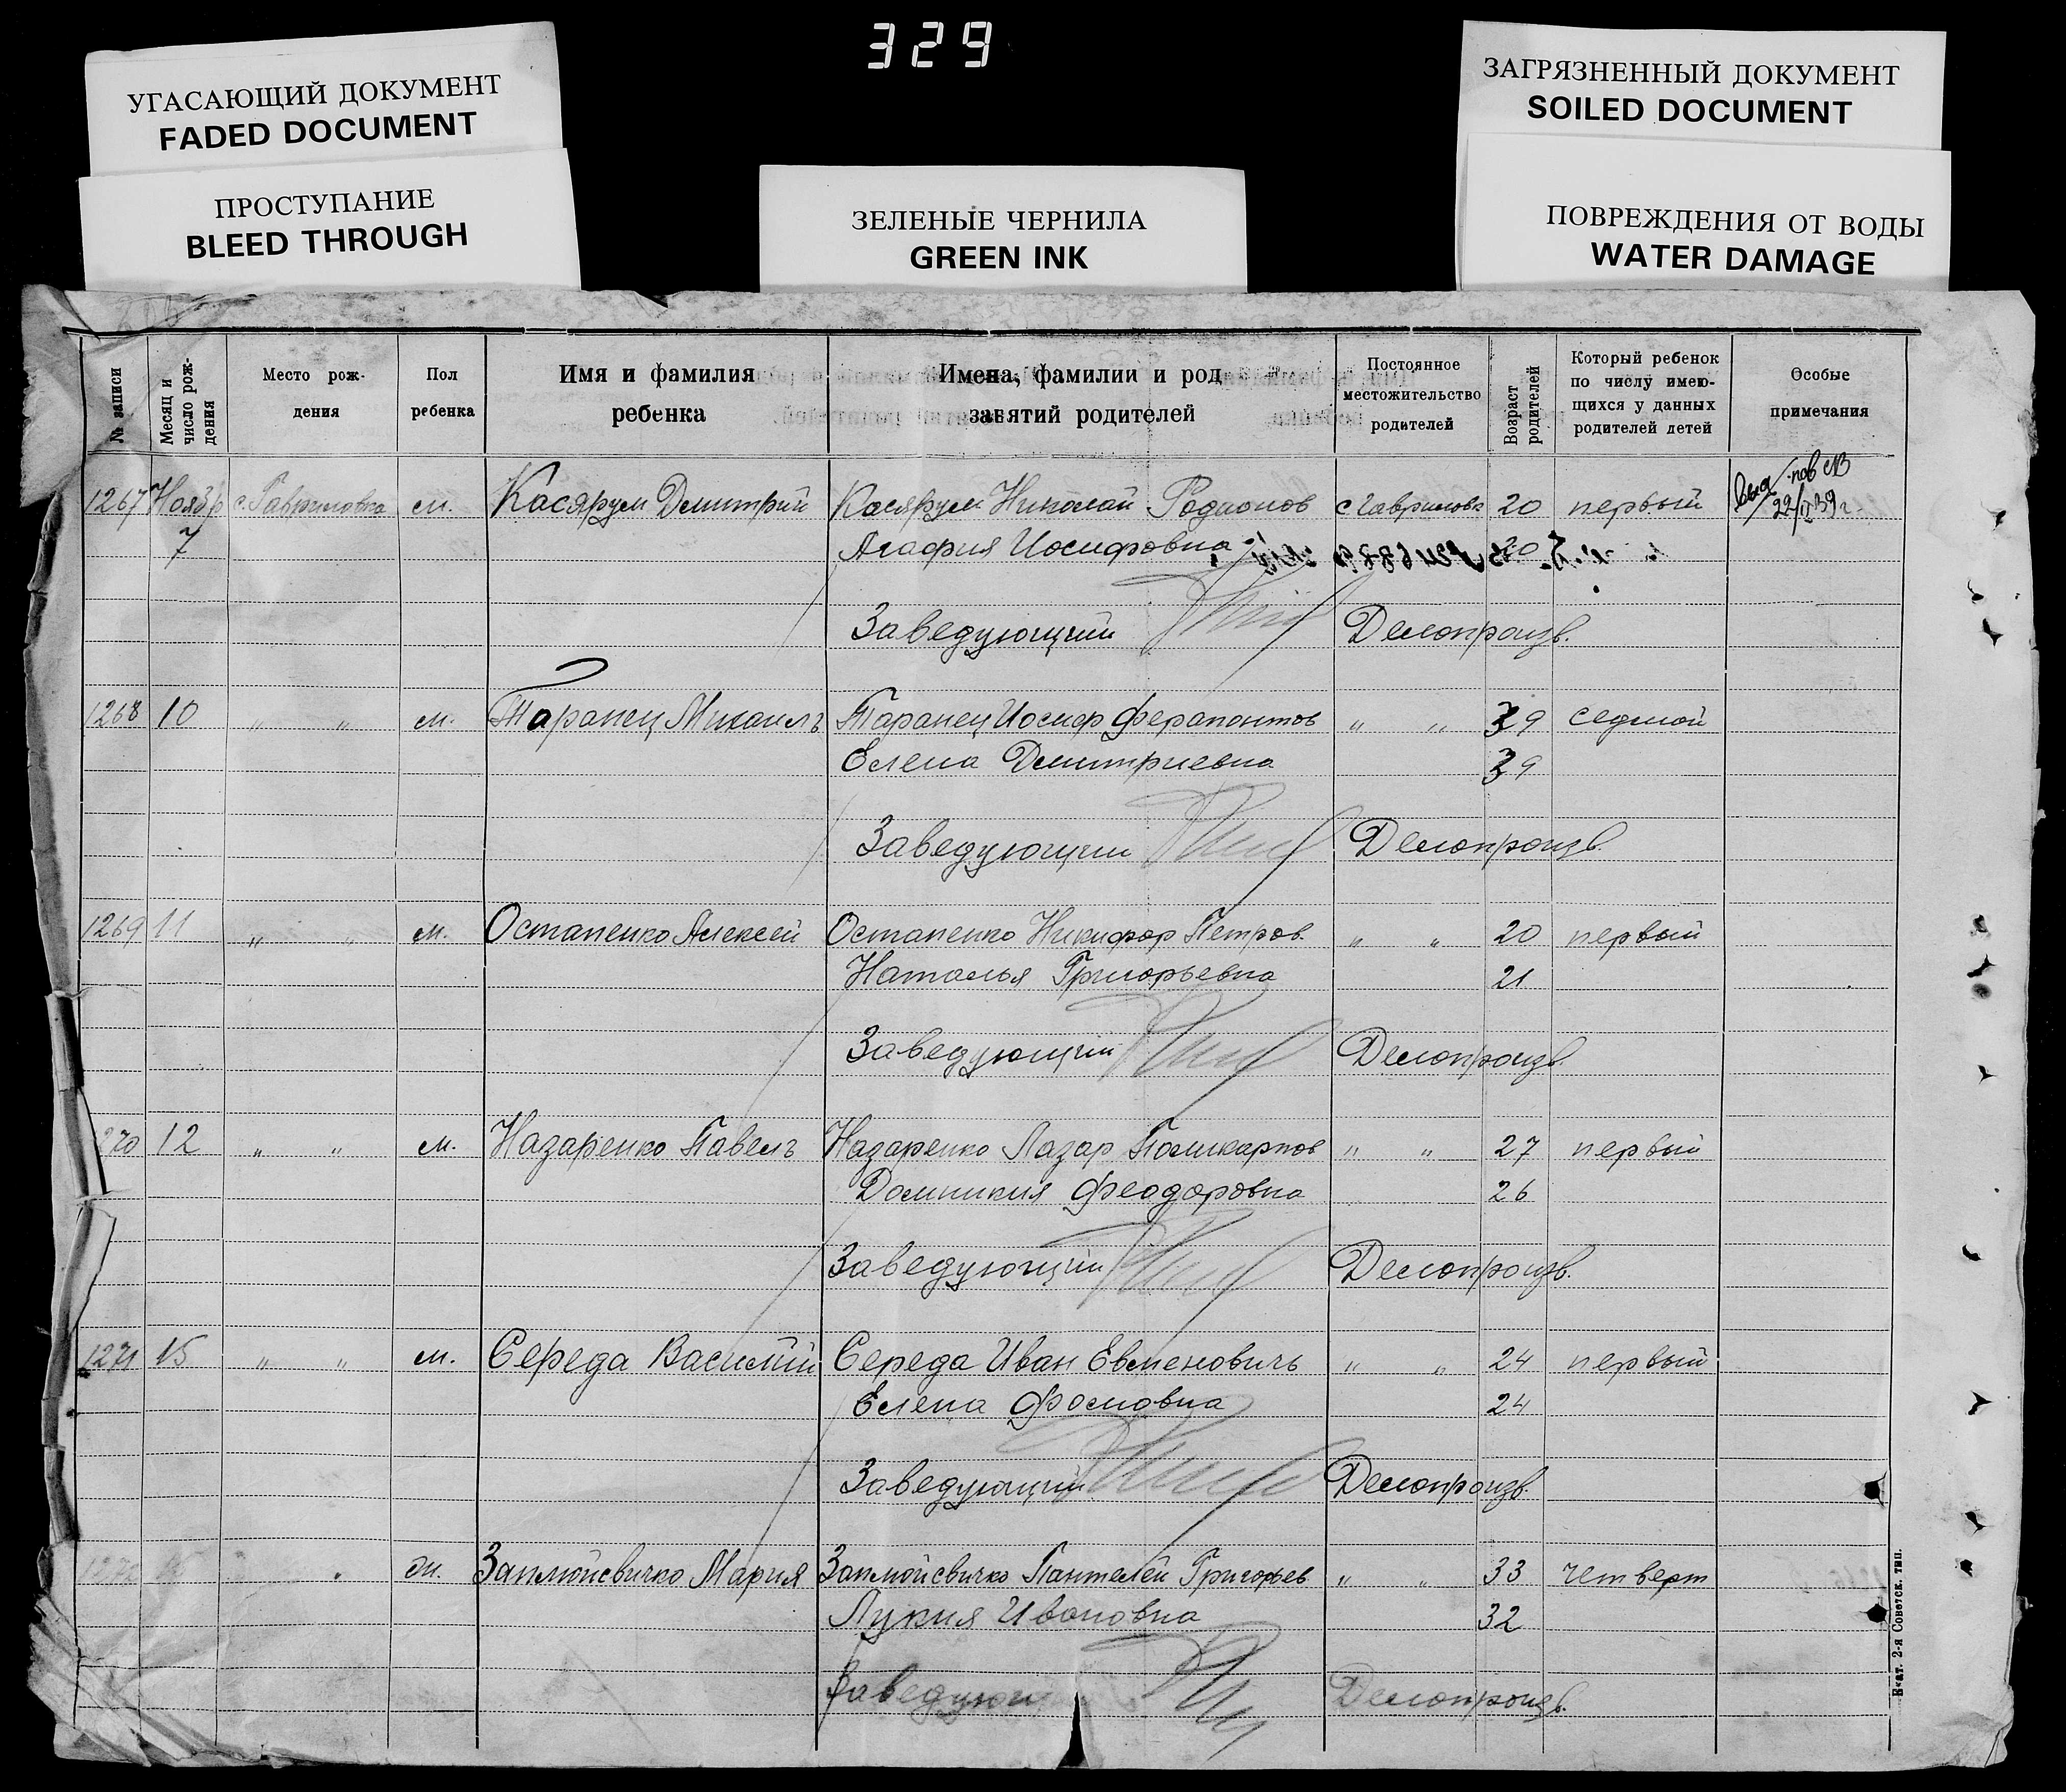 329
УГАСАЮЩИЙ ДОКУМЕНТ
FADED DOCUMENT
ПРОСТУПАНИЕ
BLEED THROUGH
ЗЕЛЕНЫЕ ЧЕРНИЛА
GREEN INK
ЗАГРЯЗНЕННЫЙ ДОКУМЕНТ
SOILED DOCUMENT
ПОВРЕЖДЕНИЯ ОТ ВОДЫ
WATER DAMAGE
№ записи
Месяц и число рождения
Место рож-
дения
Пол
ребенка
Имя и фамилия
ребенка
Имена, фамилии и род
занятий родителей
Постоянное
местожительство
родителей
Возраст
родителей
Который ребенок
по числу имею-
щихся у данных
родителей детей
Особые
примечания
1267 Ноябр с. Гавриловка м. Касярум Дмитрий Касярум Николай Родионов с Гавриловк 20 первый
7 Агафия Иосифовна 20
Заведующий Делопроизв.
1268 10 " " м. Таранец Михаилъ Таранец Иосиф Ферапонтов " " 39 седмой
Елена Дмитриевна 39
Заведующий Делопроизв.
1269 11 " " м. Остапенко Алексей Остапенко Никифор Петров. " " 20 первый
Наталья Григорьевна 21
Заведующий Делопроизв.
270 12 " " м. Назаренко Павелъ Назаренко Лазар Поликарпов " " 27 первый
Домникия Феодоровна 26
Заведующий Делопроизв.
1271 15 " " м. Середа Василий Середа Иван Евменовичь " " 24 первый
Елена 24
Заведующий Делопроизв.
1272 Мария Пантелей Григорьев " " 33 четверт
Лукия Ивановна 32
Заведующ Делопроизв.
Екат. 2-я Советск. тип.